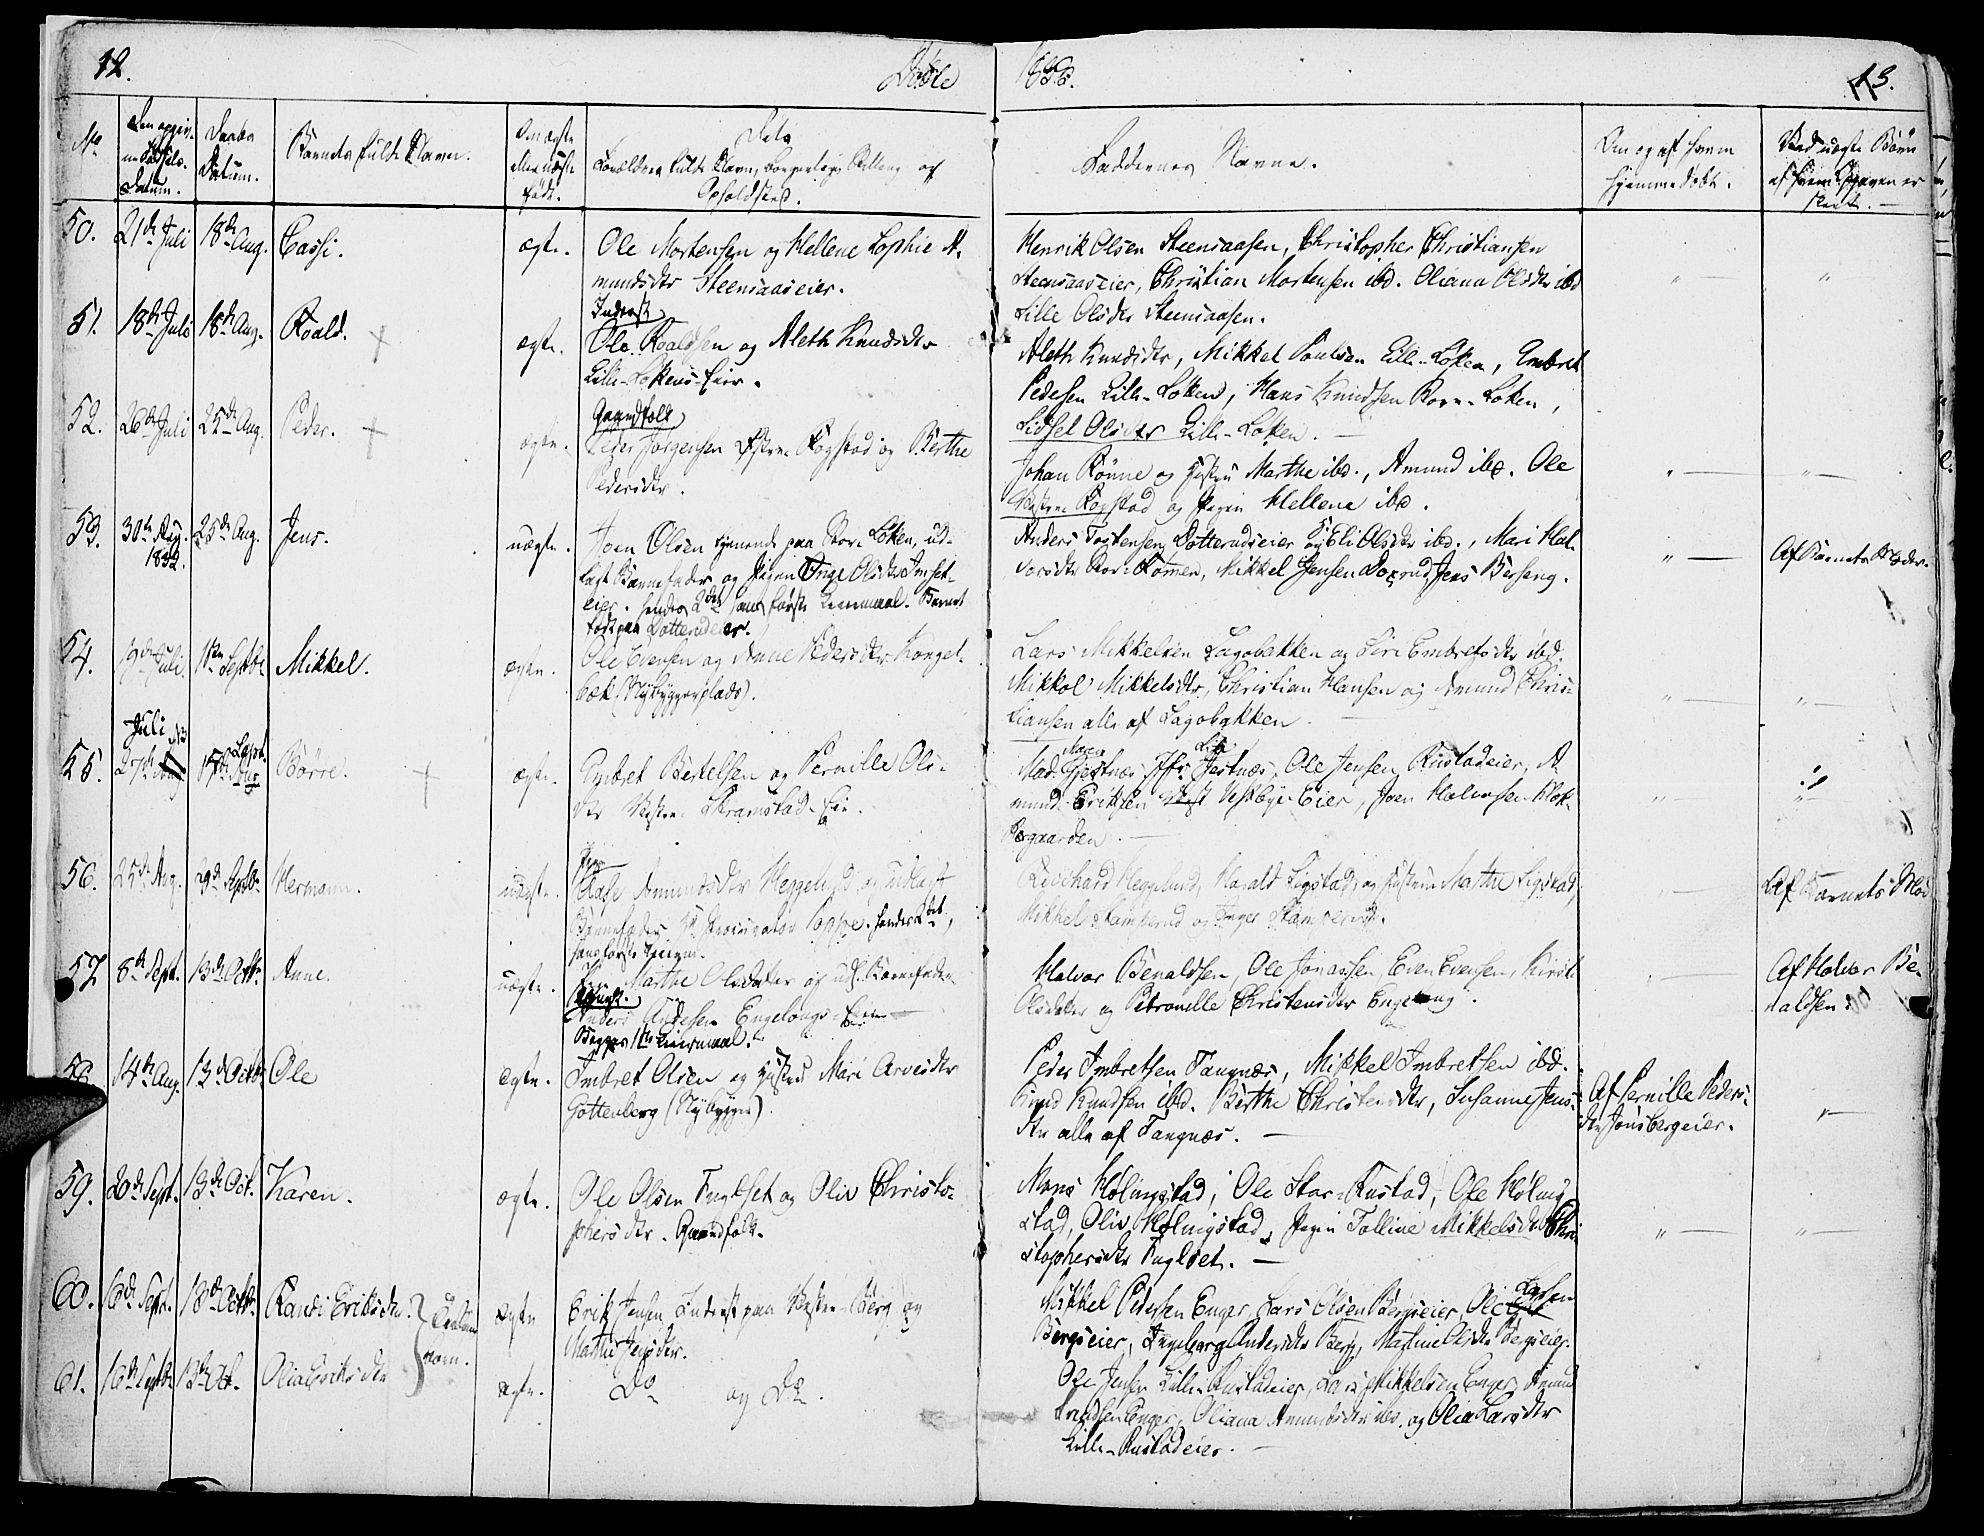 12.
Døbte
1833.
13.
No
Den opgiv-
ne Fødsels-
Datum.
Daabs
Datum.
Barnets fulde Navn.
Om ægte
eller uægte
født.
Dets
Forældres fulde Navn, Borgerlige Stilling og
Opholdsted.
Faddernes Navne.
Om og af hvem
hjemmedøbt.
Ved uægte Børn
af hvem Opgaven er
skeet.
50.
21de Juli
18de Aug.
ægte.
Ole Mortensen og Hellene Sophie A-
mundsdtr Steensaaseier.
Henrik Olsen Steensaasen, Christopher Christiansen
Steensaaseier, Christian Mortensen ibd. Oliana Olsdtr ibd
Lille Olsdtr Steensaasen.
51.
18de Juli
18de Aug.
Roald.
ægte.
Inderst
Ole Roaldsen og Aleth Knudsdtr
Lille-Løkens-Eier.
Aleth Knudsdtr, Mikkel Poulsen Lille-Løken, Embret
Pedersen Lille-Løken, Hans Knudsen Store-Løken,
Sidsel Olsdtr Lille-Løken.
52.
26de Juli
25de Aug.
Peder.
ægte.
Gaardfolk
Peder Jørgensen Østre Rogstad og Berthe
Pedersdtr.
Johan Rönne og Hustru Marthe ibd., Amund ibd. Ole
Vestre Rogstad og Pigen Hellene ibd.
53.
30te Aug.
1832.
25de Aug.
Jens.
uægte.
Joen Olsen tjenende paa Store Løken, ud-
lagt Barnefader, og Pigen Inge Olsdtr
eier. hendes 2det hans første Leiermaal. Barnet
født paa Dotterudeier.
Anders Tostensen Dotterudseier og Eli Olsdtr ibd., Mari Hal-
vorsdtr Store-Kommen, Mikkel Jensen Jens Berseng.
Af Barnets Moder.
54.
19de Juli
1ste Septbr
Mikkel.
ægte.
Ole Evensen og Anne Pedersdtr Kongel-
bæk (Nybyggerplads).
Lars Mikkelsen Lagobakken og Siri Embretsdtr ibd.
Mikkol Mikkelsdtr, Christian Hansen og Amund Chris-
tiansen alle af Lagobakken.
55.
Juli
27de
Sept.
Börre.
ægte.
Embret Bertelsen og Pernille Ols-
dtr Vestre Skramstad-Eie.
Maren
Mad. Gjestnæs, Jfr. Jestnæs, Ole Jensen Rustadeier, A
mund Eriksen Vestbye-Eier, Joen Halvorsen Klok-
kergaarden.
56.
25de Aug.
29de Septbr
Hermann.
uægte.
Pige
Aase Amundsdtr Heggelund, og udlagt
Barnefader Procurator hendes 2det,
hans første Leierm.
Richard Heggelund, Harald Sigstad, og Hustrue Marthe Sigstad,
Mikkel Stamperud og Inger Stamperud.
Af Barnets Mod
57
8de Sept.
13de Octbr
Anne.
uægte.
Pige Marthe Olsdatter og udl. Barnefader
Anders Engelongs-Eier
Begges 1ste Leiermaal.
Halvor Benaldsen, Ole Jonassen, Even Evensen, Kirsti
Olsdatter og Petronelle Christensdtr Engelong.
Af Halvor Be-
naldsen
58
14de Aug.
13de Octbr
Ole
ægte.
Imbret Olsen og Hustru Mari Arvesdtr
Gottenborg (Nybygger).
Peder Imbretsen Tangnæs, Mikkel Imbretsen ibd.
Knud Knudsen ibd. Berthe Christensdtr, Susanne Jens-
dtr alle af Tangnæs.
Af Pernille Peders-
dtr Jonsbergeier.
59.
20de Sept.
13de Oct.
Karen.
ægte.
Ole Olsen Fuglset og Oliv Christo-
phersdtr. Gaardfolk.
Mons Holmgstad, Ole Stor-Rustad, Ole Holmg-
stad, Oliv Holmgstad, Pigen Talline Mikkelsdtr Chri
stophersdtr Fuglset.
60.
16de Sept.
13de Octbr
Randi Eriksdtr.
Tvillin-
ægte
Erik Jensen Inderst paa Vestre Berg og
Marthe Jensdtr.
Mikkel Pedersen Enger, Lars Olsen Bergseier, Ole Larsen
Bergseier, Ingeborg Andersdtr Berg, Martine Olsdtr Bergseier.
61.
16de Septbr
13de Oct.
Olia Eriksdtr
ægte.
Do og Do.
Ole Jensen Lille-Rustadeier, Lars Mikkelsen Enger, Amund
Knudsen Enger, Oliana Amundsdtr ibd. og Olea Larsdtr
Lille-Rustadeier.